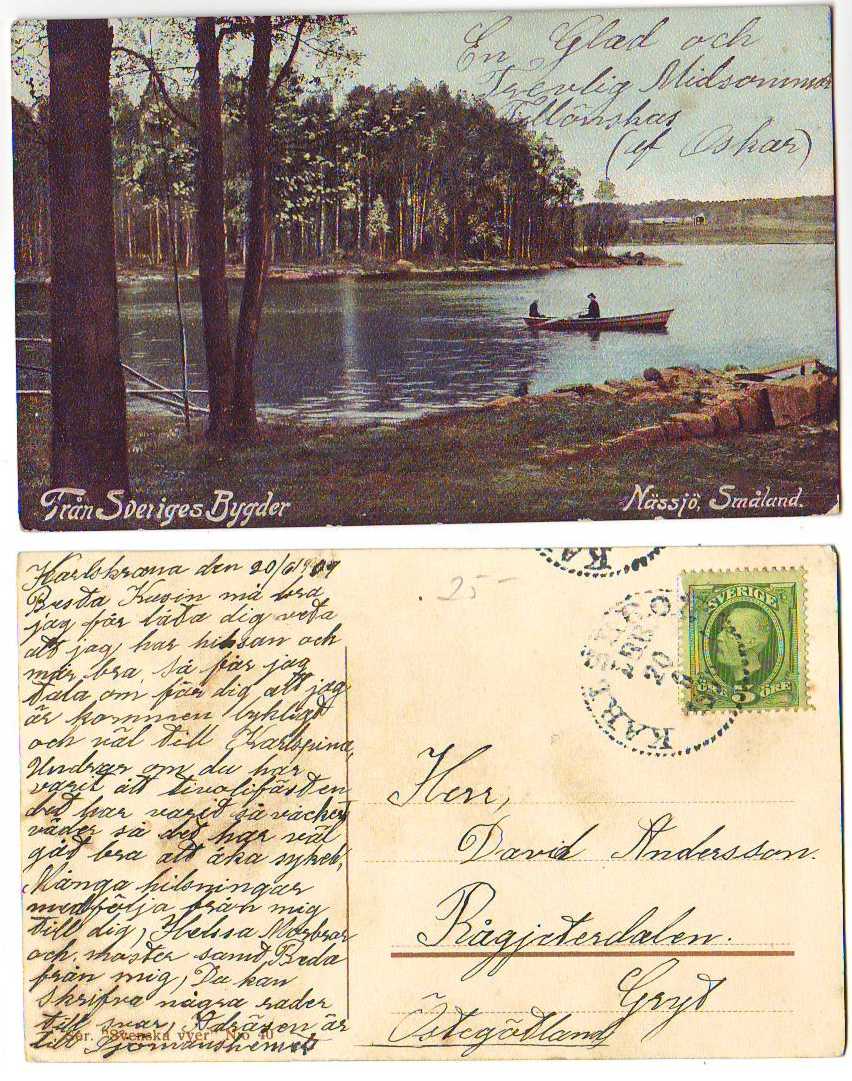 En Glad och
Trevlig Midsommar
Tillönskas
(af Oskar)
Från Sveriges Bygder
Nässjö, Småland.
Karlskrona den 20/6 1909
Bästa Kusin må bra
jag får låta dig veta
att jag har hälsan och
mår bra, så får jag
tala om för dig att jag
är kommen lykligt
och väl till
Undrar om du har
varit åt tivolifästen
det har varit så vackert
väder så det har väl
gåt bra att åka sykel,
Många hilsningar
medfölja från mig
till dig, Helssa Morbror
och moster samt Beda
från mig, Du kan
skrifva några rader
till svar, Adräsen är
till Sjömanshemet
Ser. "Svenska vyer" No 40
25-
SVERIGE
ÖRE 5 ÖRE
KARLSKRONA
20
Herr,
David Andersson.
Gryt
Östegötland